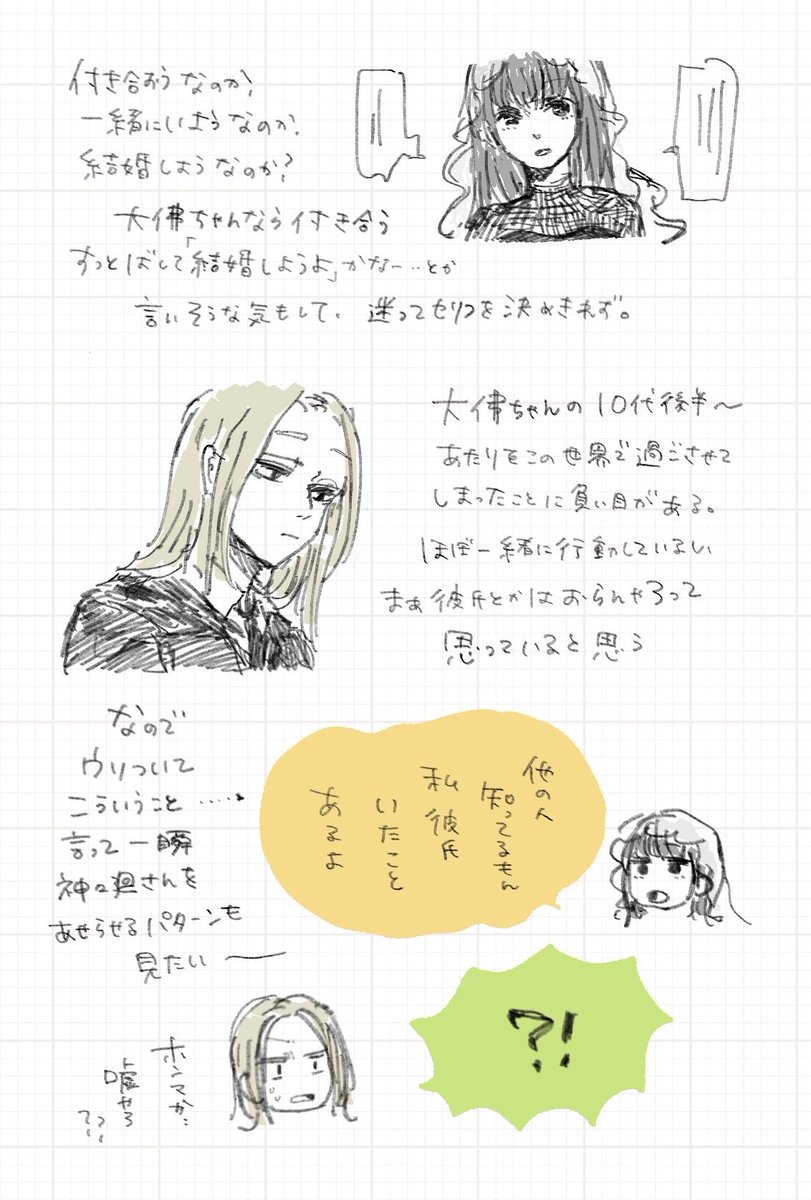 付き合おうなのか、
一緒にいようなのか、
結婚しようなのか?
大佛ちゃんなら付き合う
すっとばして「結婚しようよ」かなー…とか
言いそうな気もして、迷ってセリフを決めきれず。
大佛ちゃんの10代後半～
あたりをこの世界で過ごさせて
しまったことに負い目がある。
ほぼ一緒に行動しているしい
まぁ彼氏とかはおらんやろって
思っていると思う
なので
ウソついて
こういうこと……
言って一瞬
神々廻さんを
あせらせるパターンも
見たい――
他の人
知ってるもん
私 彼氏
いたこと
あるよ
?!
ホンマか…
嘘やろ
??